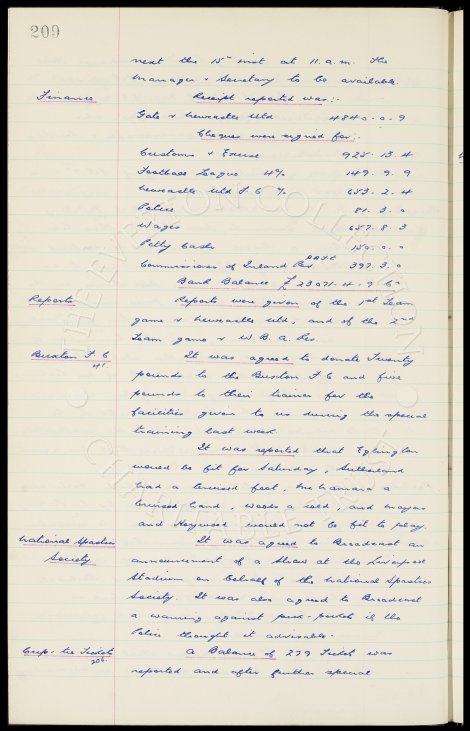 209
next the 15th inst at 11. a.m. the
manager & Secretary to be available.
Finance
Receipt reported was:-
Gate v Newcastle Utd 4840. 0. 9
Cheques were signed for:-
Customs & Excise 925. 13. 4
Football League 4% 149. 9. 9
Newcastle Utd F. C % 653. 2. 4
Police 81. 3. 0
Wages 657. 8. 3
Petty Cash 150. 0. 0
Commissioners of Inland Rev. PAYE 397. 3. 0
Bank Balance £ 23071. 4. 9 Cr
Reports
Reports were given of the 1st Team
game v Newcastle Utd, and of the 2nd
Team game v W. B. A. Res.
Buxton F. C
It was agreed to donate Twenty
pounds to the Buxton F. C and five
pounds to their trainer for the
facilities given to us during the special
training last week.
It was reported that Eglington
would be fit for Saturday, Sutherland
had a bruised foot, McNamara a
bruised hand, Woods a cold, and Mayers
and Haywood would not be fit to play.
National Spastics
Society
It was agreed to Broadcast an
announcement of a Show at the Liverpool
Stadium on behalf of the National Spastics
Society. It was also agreed to Broadcast
a warning against pick-pockets if the
Police thought it advisable.
Cup-tie Tickets
A Balance of 279 Tickets was
reported and after further special
THE EVERTON COLLECTION